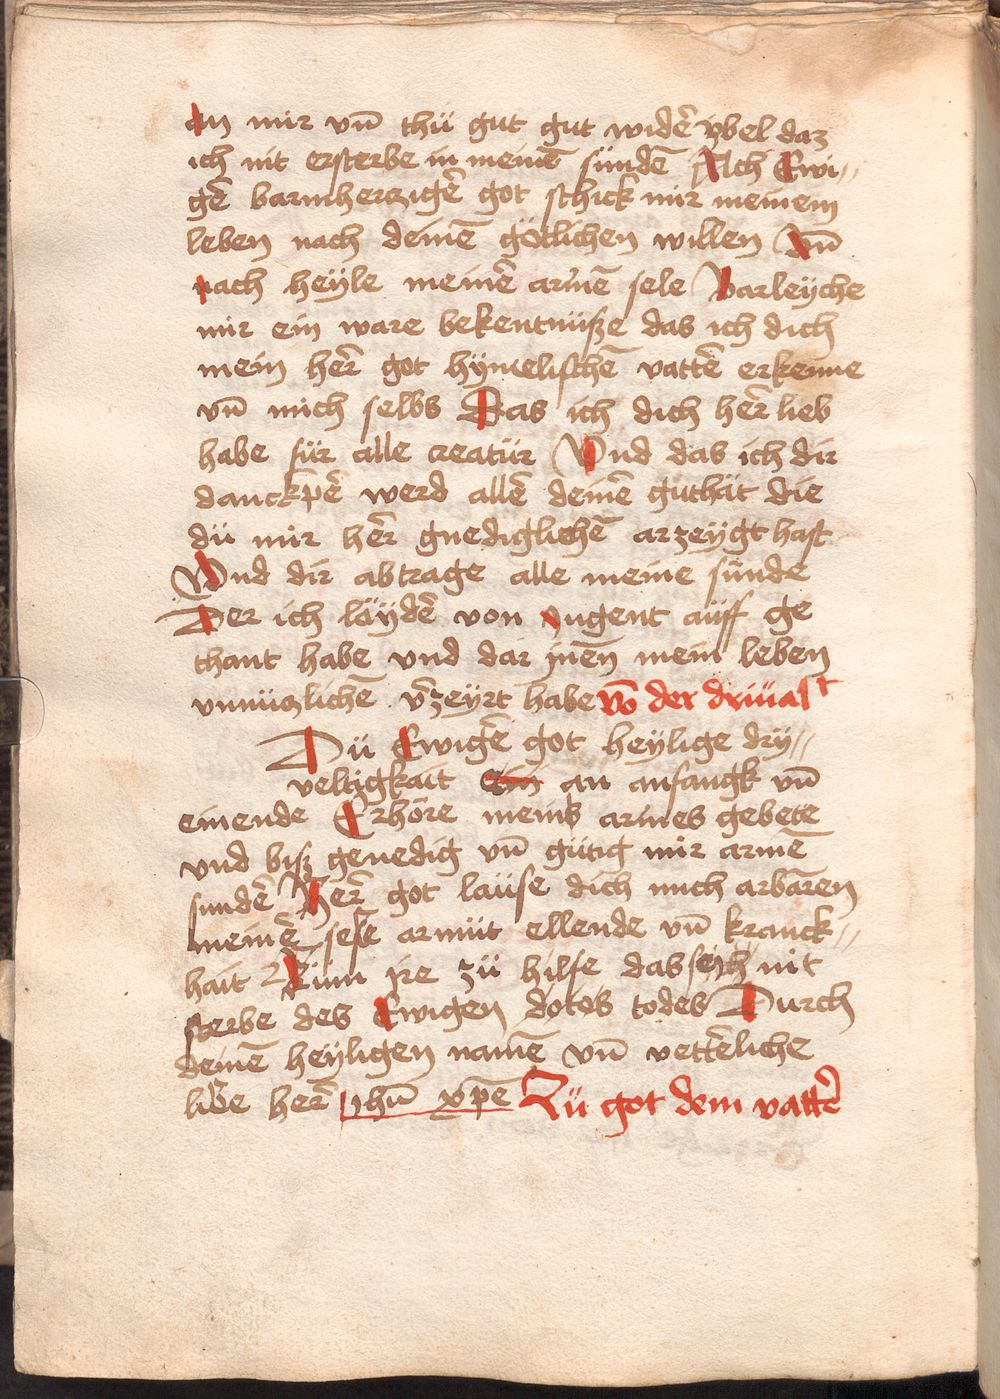 an mir vn̄ thü gut gut widē ybel daz
ich nit ersterbe in meinē sündē Ach Ewi//
gē barmherzigē got schick mir meinem
leben nach deinē götlichen willen Vn̄
nach heyle meinē armē sele Varleyche
mir ein ware bekentnüsze das ich dich
mein hēr got hymelischē vattē erkenne
vn̄ mich selbs Das ich dich hēr lieb
habe für alle creatür Vnd das ich dir
danckpē werd allē deinē güthät die
dü mir hēr gnediglichē arzeygt hast
Vnd dir abtrage alle meine sünde
Der ich läydē von Jugent aüff ge
thant habe vnd dar jnēn mein leben
vnnüzlichē v̄zeyrt habe vō der driüalt
Dü Ewigē got heylige dry//
veltigkait ein an anfangk vn̄
einende Erhöre meins armes gebete
vnd bisz genedig vn̄ gütig mir armē
sundē Hēr got laüse dich mich arbaren
meinē sele armüt ellende vn̄ kranck//
hait Küm jre zü hilfe das sejch nit
sterbe des Ewigen dotos todes Durch
deinē heyligen namē vn̄ vettēliche
libe herē Jhū xpē Zü got dem vattē